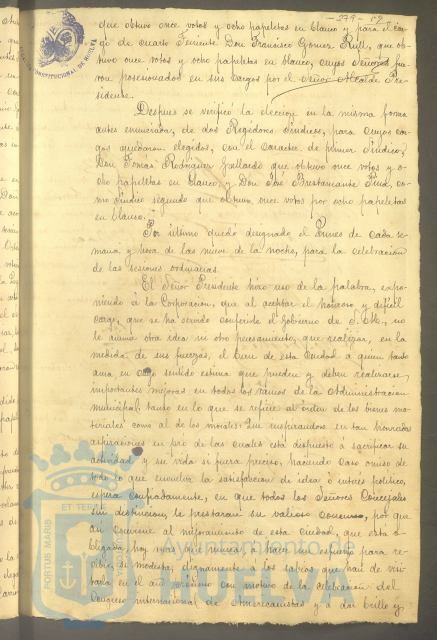 -379- 52
que obtuvo once votos y ocho papeletas en blanco y para el car-
go de cuarto Teniente Don Francisco Gómez Rull, que ob-
tuvo once votos y ocho papeletas en blanco, cuyos Señores fue-
ron posesionados en sus cargos por el Señor Alcalde Pre-
sidente.
Despues se verificó la eleccion en la misma forma
antes enunciada, de dos Regidores Síndicos, para cuyos car-
gos quedaron elegidos, con el caracter de primer Síndico,
Don Tomás Rodríguez Gallardo que obtuvo once votos y o-
cho papeletas en blanco, y Don José Bustamante, co-
mo síndico segundo que obtuvo once votos por ocho papeletas
en blanco.
Por último quedó designado el Lunes de cada se-
mana y hora de las nueve de la noche, para la celebracion
de las sesiones ordinarias.
El Señor Presidente hizo uso de la palabra, expo-
niendo á la Corporacion, que al aceptar el honroso y dificil
cargo, que se ha servido conferirle el Gobierno de S. M., no
le anima otra idea ni otro pensamiento, que realizar, en la
medida de sus fuerzas, el bien de esta Ciudad á quien tanto
ama en cuyo sentido estima que pueden y deben realizarse,
importantes mejoras en todos los ramos de la Administracion
municipal, tanto en lo que se refiere al órden de los bienes ma-
teriales como al de los morales: Que inspirandose en tan honradas
aspiraciones en pró de las cuales está dispuesto á sacrificar su
actividad y su vida si fuera preciso, haciendo caso omiso de
todo lo que envuelva la satisfaccion de idea ó interés político,
espera confiadamente, en que todos los Señores Concejales
sin distincion, le prestarán su valioso concurso, por que
así conviene al mejoramiento de esta ciudad, que está o-
bligada hoy mas que nunca á hacer un esfuerzo para re-
cibir, si modesta, dignamente á los sabios que han de visi-
tarla en el año próximo con motivo de la celebracion del
Congreso internacional de Americanistas y á dar brillo y
CONSTITUCIONAL DE HUELVA
PORTUS MARIS
ET TERRAE
Ayuntamiento de
HUELVA